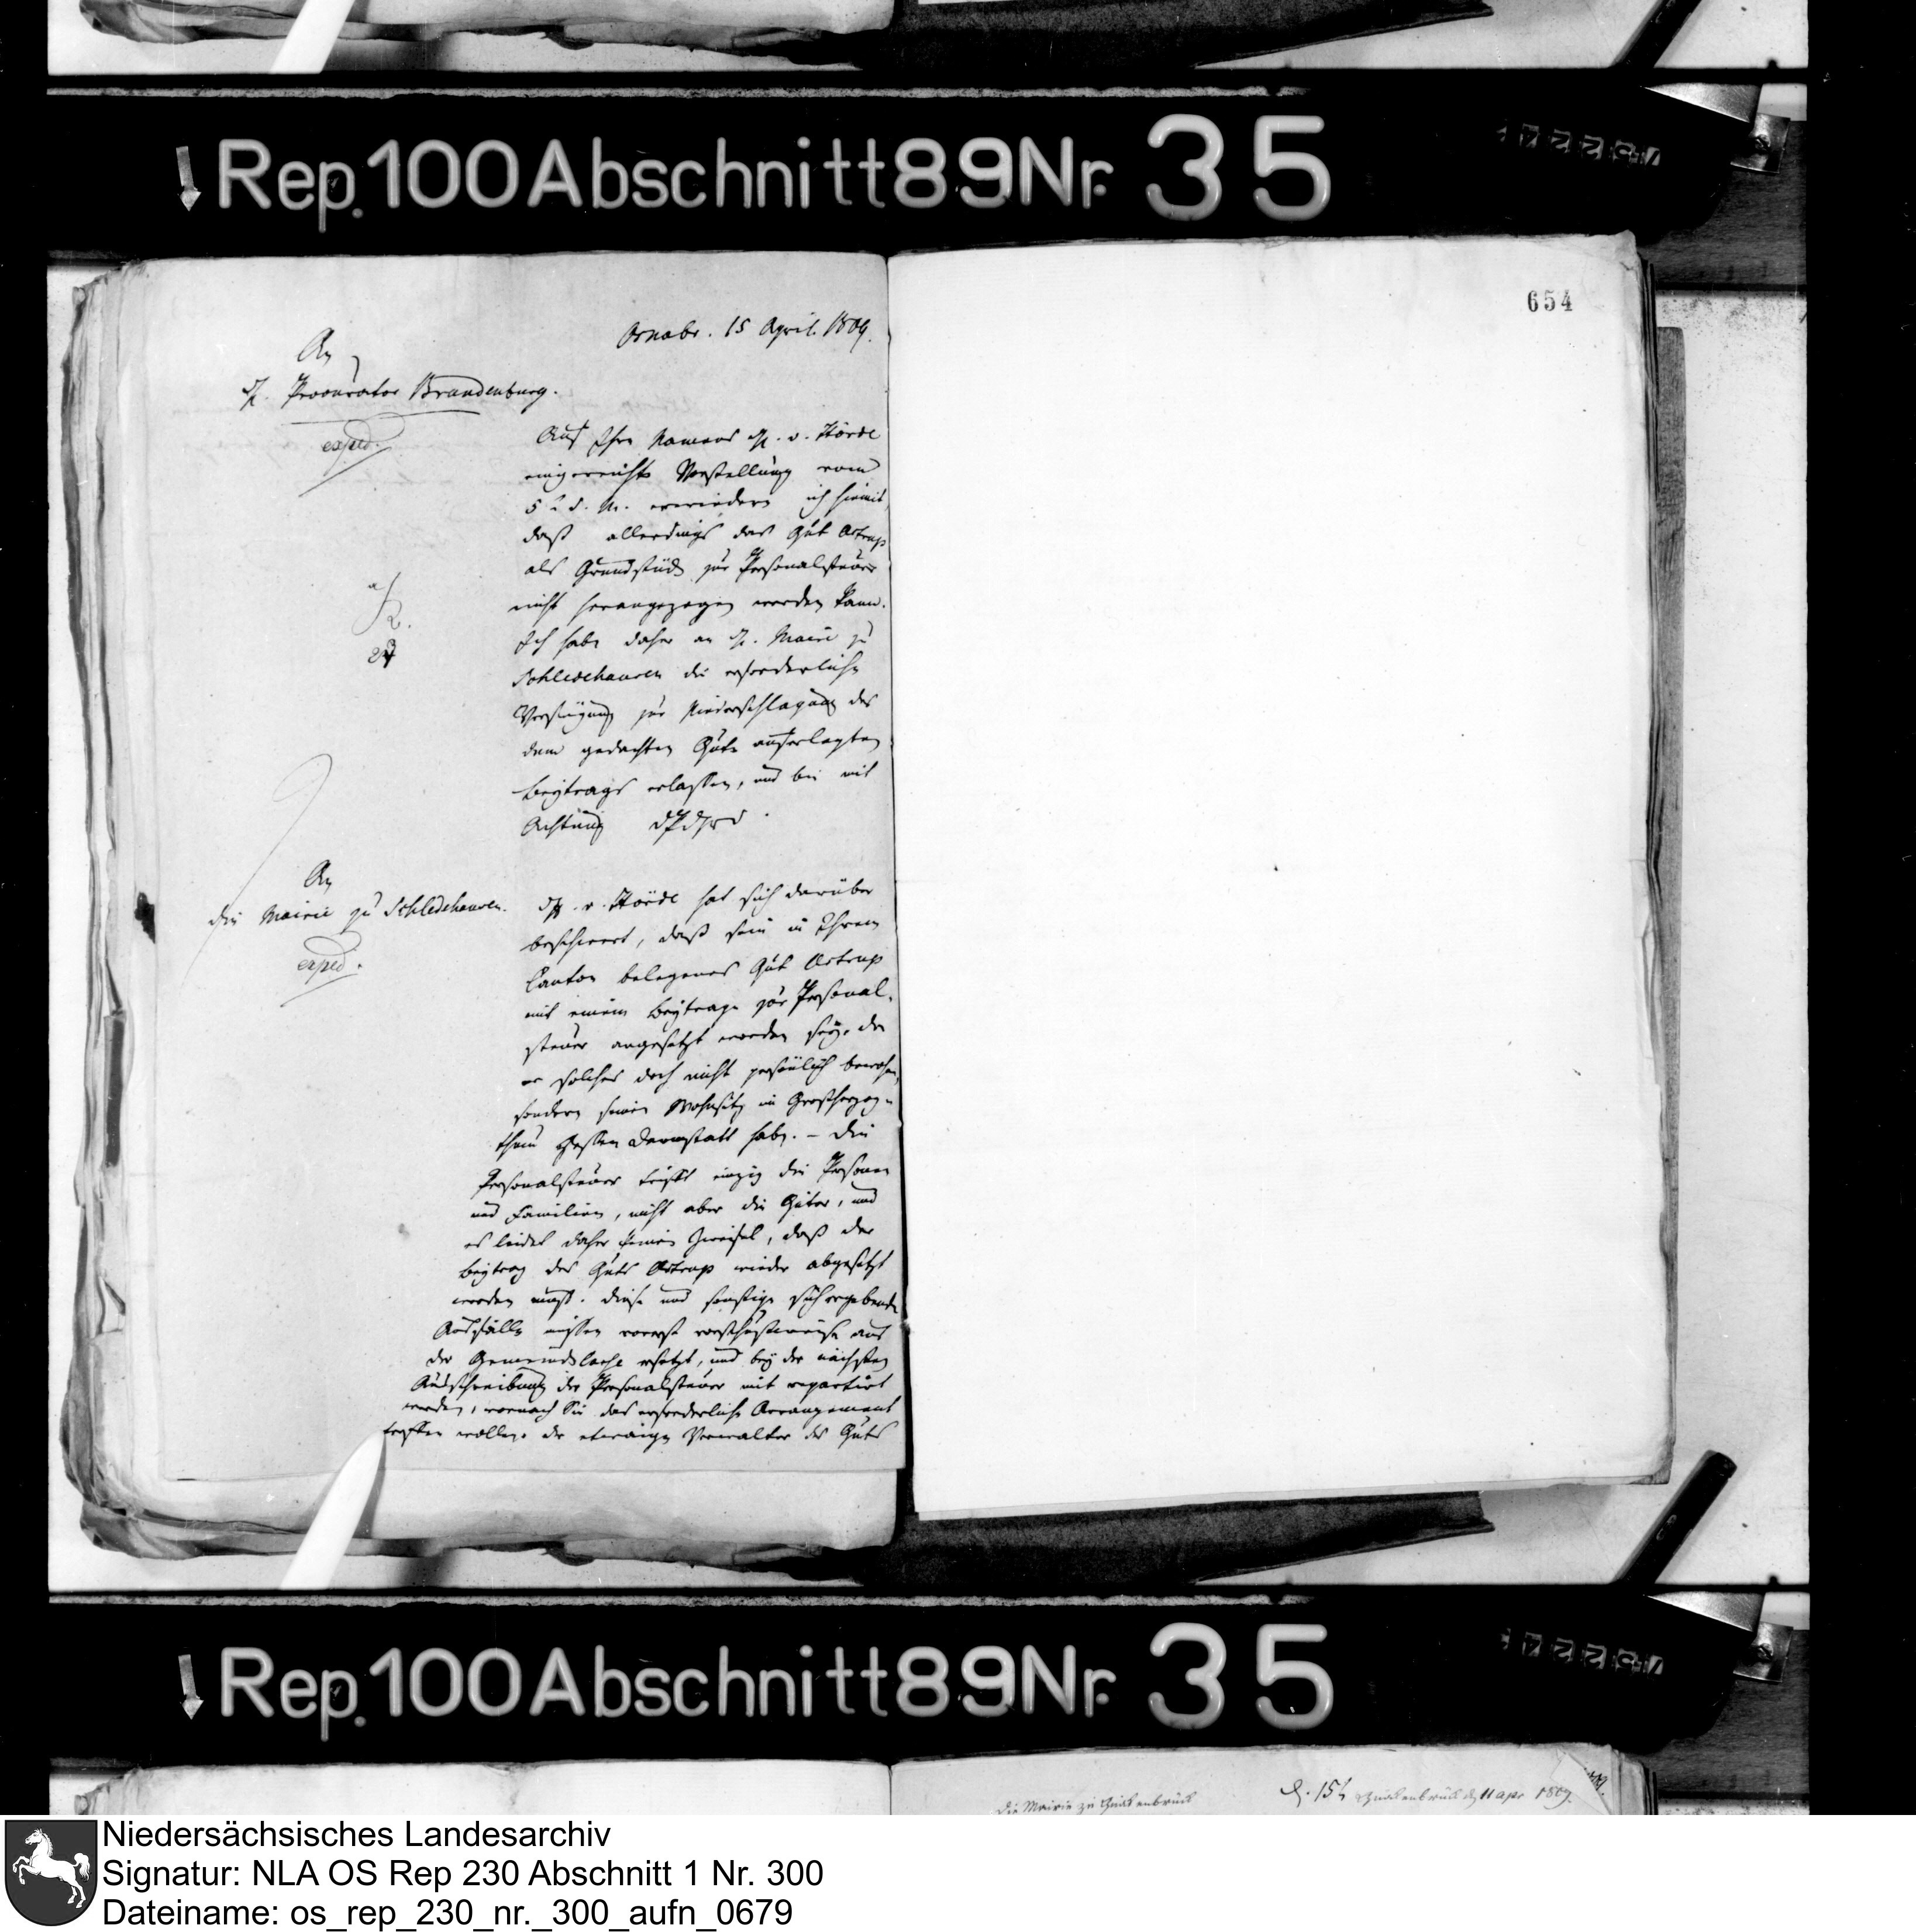 Rep. 100 Abschnitt 89 Nr. 35
654
Osnabr. 15 April. 1809.
An
H. Procurator Brandenburg.
exped.
Auf Ihre Namens H. v. Hörde
eingereichte Vorstellung vom
5 d. M. erwiedere ich hiemit,
daß allerdings das Gut Astrup
als Grundstück zur Personalsteuer
nicht herangezogen werden kann.
Ich habe daher an H. Maire zu
Schledehausen die erforderliche
Verfügung zur Niederschlagung des
dem gedachten Gute auferlegten
Beytrags erlassen, und bin mit
Achtung
An
die Mairie zu Schledehausen.
exped.
H. v. Hörde hat sich darüber
beschwert, daß sein in Ihrem
Canton belegenes Gut Astrup
mit einem Beytrage zur Personal-
steuer angesetzt worden sey, da
er solches doch nicht persönlich bewohne,
sondern seinen Wohnsitz im Großherzog-
thum Hessen Darmstatt habe. – Die
Personalsteuer trifft einzig die Personen
und Familien, nicht aber die Güter, und
es leidet daher keinen Zweifel, daß der
Beytrag des Guts Astrup wieder abgesetzt
werden muß. Diese und sonstige sich ergebende
Ausfälle müssen vorerst vorschußweise aus
der Gemeindskasse ersetzt, und bey der nächsten
Ausschreibung der Personalsteuer mit repartirt
werden, wornach Sie das erforderliche Arrangement
treffen wollen. Der etwaige Verwalter des Guts
Rep. 100 Abschnitt 89 Nr. 35
Die Mairie zu Quakenbrück
Quakenbrück 11 apr 1809.
Niedersächsisches Landesarchiv
Signatur: NLA OS Rep 230 Abschnitt 1 Nr. 300
Dateiname: os_rep_230_nr._300_aufn_0679